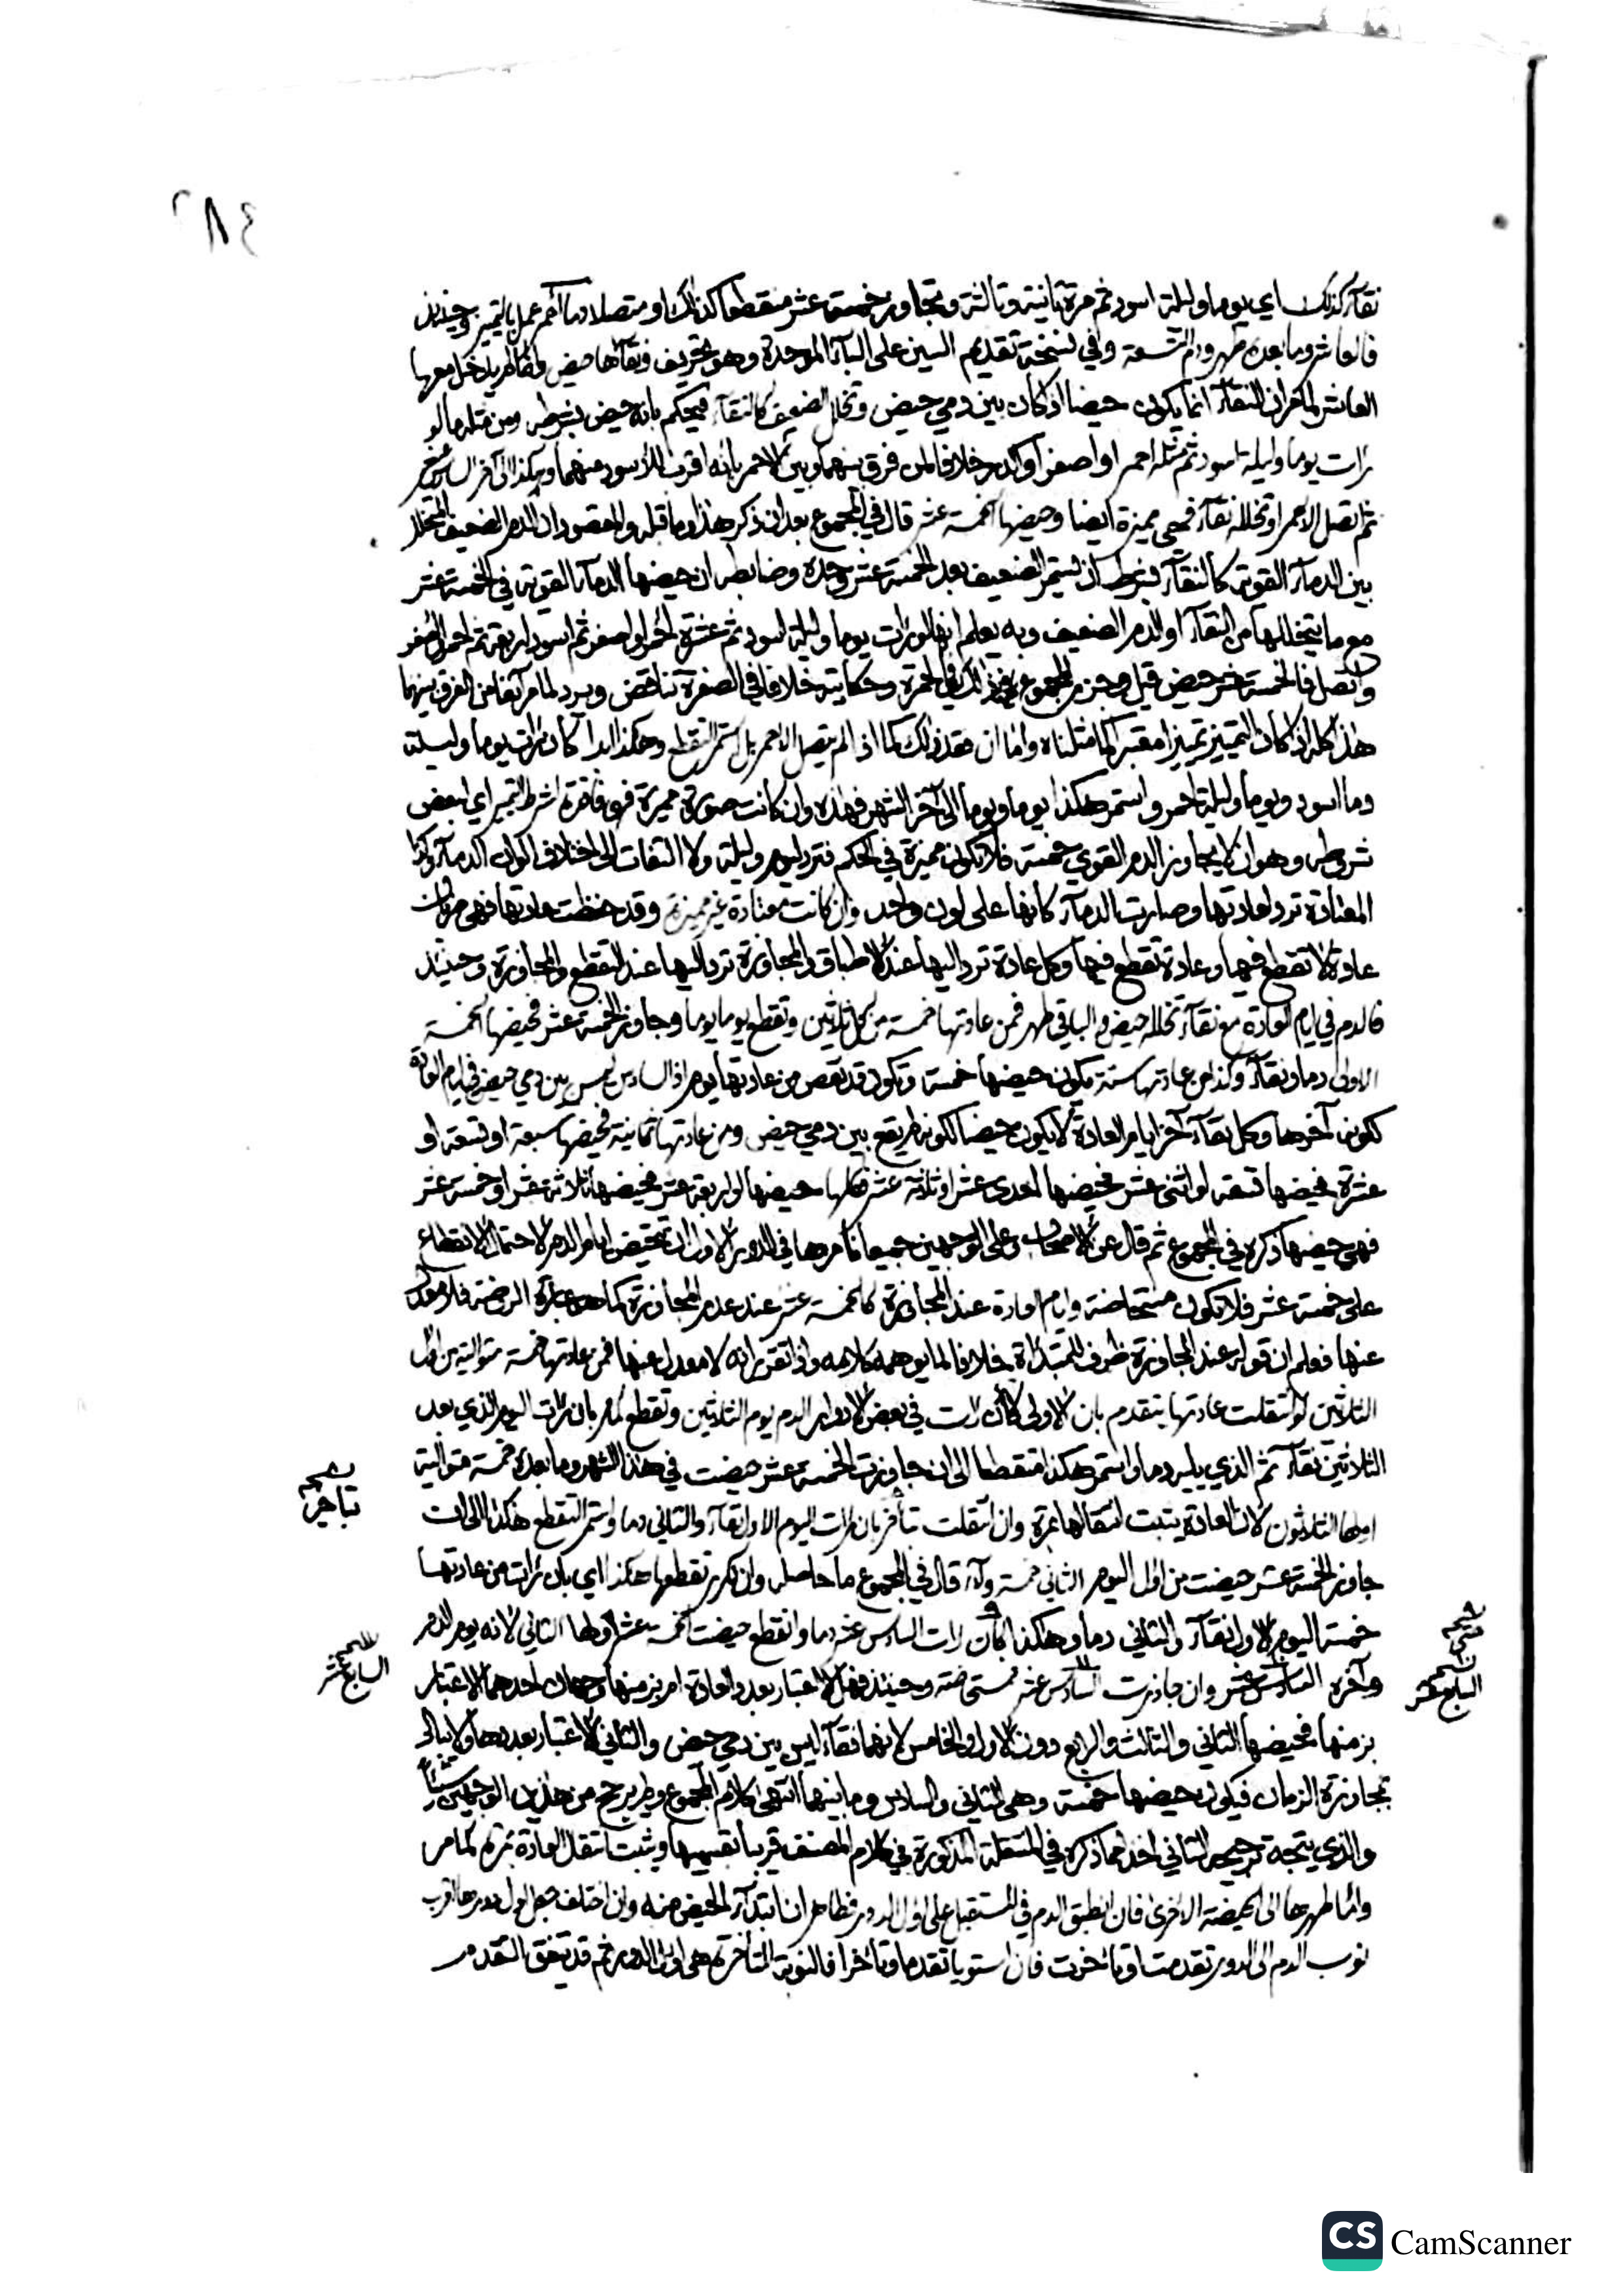 ٢٨٤
نقآء كذلك اي يوما وليلة اسود ثم مرة ثانية وثالثة وتجاوز خمسة عشر متقطعا كذلك او متصلا دما احمر عمل بالتمييز وحينئذ
فالعاشر وما بعده طهر ودم التسعة وفي نسخة تقديم السين على البآء الموحدة وهو تحريف ونقآؤها حيض ولم يدخل معها
العاشر لما مر ان النقآء انما يكون حيضا اذا كان بين دمي حيض وتخلل الضعيف كالنقآء فيحكم بانه حيض بشرطه ومن مثله ما لو
رات يوما وليلة اسود ثم مثله احمر او اصفر او اكدر خلافا لمن فرق بينهما وبين الاحمر بانه اقرب للاسود منهما وهكذا الى آخر
ثم اتصل الاحمر او تخلله نقآء فهي مميزة ايضا وحيضها الخمسة عشر قال في المجموع بعد ان ذكر هذا وما قبله والمقصود ان الدم الضعيف المتخلل
بين الدمآء القوية كالنقآء بشرط ان يستمر الضعيف بعد الخمسة عشر وحده وضابطه ان حيضها الدمآء القوية في الخمسة عشر
مع ما يتخللها من النقآء او الدم الضعيف وبه يعلم انها لو رات يوما وليلة اسود ثم عشرة احمر او اصفر ثم اسود اربعة ثم احمر او اصفر
واتصل فالخمسة عشر حيض قيل وجزم المجموع بذلك في الحمرة وحكايته خلافا في الصفرة تناقض ويرد لما مر آنفا من الفرق بينهما
هذا كله اذا كان التمييز تمييزا معتبرا كما مثلناه واما ان فقد ذلك كما اذا لم يتصل الاحمر بل استمر التقطع وهكذا ابدا كان رات يوما وليلة
دما اسود ويوما وليلة احمر واستمر هكذا يوما ويوما الى آخر الشهر فهذه وان كانت صورة مميزة فهي فاقدة شرط التمييز اي بعض
شروطه وهو ان لا يجاوز الدم القوي خمسة فلا تكون مميزة في الحكم فترد ليوم وليلة ولا التفات الى اختلاف الوان الدمآء وكذا
المعتادة ترد لعادتها وصارت الدمآء كانها على لون واحد وان كانت معتادة غير مميزة وقد حفظت عادتها فهي ضربان
عادة لا تقطع فيها وعادة تقطع فيها وكل عادة ترد اليها عند الاطباق والمجاوزة ترد اليها عند التقطع والمجاوزة وحينئذ
فالدم في ايام العادة مع نقآء تخلله حيض والباقي طهر فمن عادتها خمسة من كل ثلاثين وتقطع يوما يوما وجاوز الخمسة عشر فحيضها الخمسة
الاولى دما ونقآء وكذا من عادتها ستة يكون حيضها خمسة وتكون قد نقص من عادتها يوم اذ السادس ليس بين دمي حيض في ايام العادة
لكونه آخرها وكل نقآء آخر ايام العادة لا يكون حيضا لكونه لم يقع بين دمي حيض ومن عادتها ثمانية فحيضها سبعة او تسعة او
عشرة فحيضها تسعة او اثني عشر فحيضها احدى عشر او ثلاثة عشر فكلها حيضها او اربعة عشر فحيضها ثلاثة عشر او خمسة عشر
فهي حيضها ذكره في المجموع ثم قال عن الاصحاب وعلى الوجهين جميعا نامرها في الدور الاول ان تتحيض ايام الدم لاحتمال الانقطاع
على خمسة عشر فلا تكون مستحاضة وايام العادة عند المجاوزة كالخمسة عشر عند عدم المجاوزة كما هو عبارة الروضة فلا معدل
عنها فعلم ان قوله عند المجاوزة ظرف للمبتدأة خلافا لما يوهمه كلامه واذا تقرر انه لا معدل عنها فمن عادتها خمسة متوالية من اول
الثلاثين لو انتقلت عادتها بتقدم بان الاولى كأن رات في بعض الادوار الدم يوم الثلاثين وتقطع لما مر بان رات اليوم الذي بعد
الثلاثين نقآء ثم الذي يليه دما واستمر هكذا متقطعا الى ان جاوزت الخمسة عشر حيضت في هذا الشهر وما بعده خمسة متوالية
اولها الثلاثون لان العادة يثبت انتقالها بمرة وان انتقلت بتأخر بان رات اليوم الاول نقآء والثاني دما واستمر التقطع هكذا الى ان
جاوز الخمسة عشر حيضت من اول اليوم الثاني خمسة ولآء قال في المجموع ما حاصله وان تكرر تقطعها هكذا اي بان رات من عادتها
خمسة اليوم الاول نقآء والثاني دما وهكذا كأن رات السادس عشر دما وانقطع حيضت الخمسة عشر اولها الثاني لانه يوم الدم
وآخره السادس عشر وان جاوزت السادس عشر فمستحاضة وحينئذ فهل الاعتبار بعدد العادة ام بزمنها وجهان احدهما الاعتبار
بزمنها فحيضها الثاني والثالث والرابع دون الاول والخامس لانهما نقآء ليس بين دمي حيض والثاني الاعتبار بعددها ولا نبالي
بمجاوزة الزمان فيكون حيضها خمسة وهي الثاني والسادس وما بينهما انتهى كلام المجموع ولم يرجح من هذين الوجهين شيئاً
والذي يتجه ترجيح الثاني اخذا مما ذكره في المنتقلة المذكورة في كلام المصنف قريبا بقسيمها ويثبت انتقال العادة بمرة كما مر
واما طهرها الى الحيضة الاخرى فان انطبق الدم في المستقبل على اول الدور فظاهر ان ابتدآء الحيض منه وان اختلف جعل اول دورها اقرب
نوب الدم الى الدور تقدمت او تأخرت فان استويا تقدما وتأخرا فالنوبة المتأخرة هي اول الدور ثم قد يتفق التقدم
نسخه
بتاخير
نسخه
السابع عشر
نسخه
السابع عشر